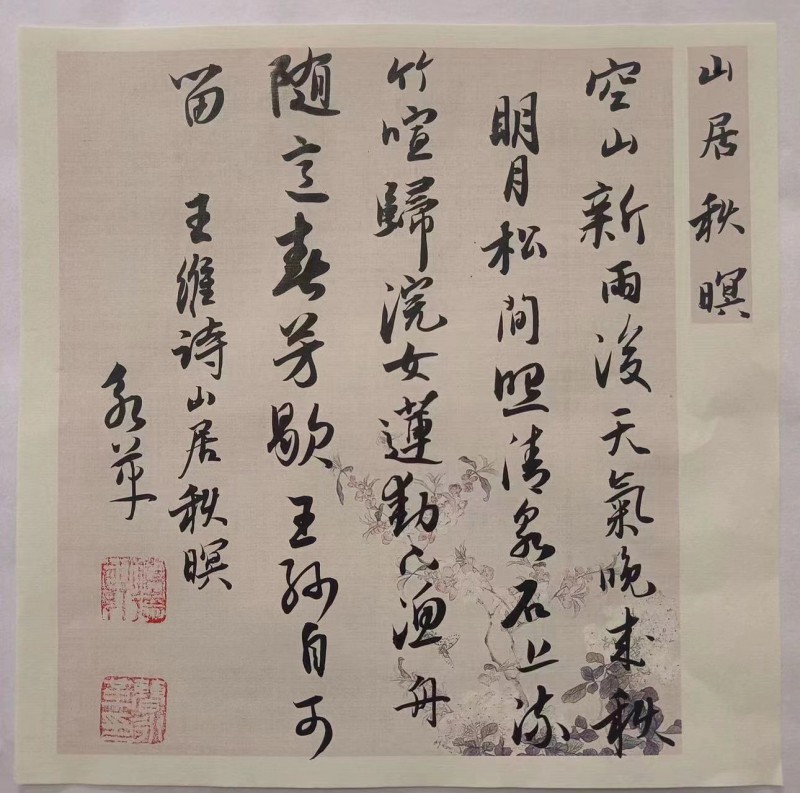 山居秋暝
空山新雨後天氣晚来秋
明月松間照清泉石上流
竹喧歸浣女蓮動下渔舟
随意春芳歇王孫自可
留 王維詩山居秋暝
永苹